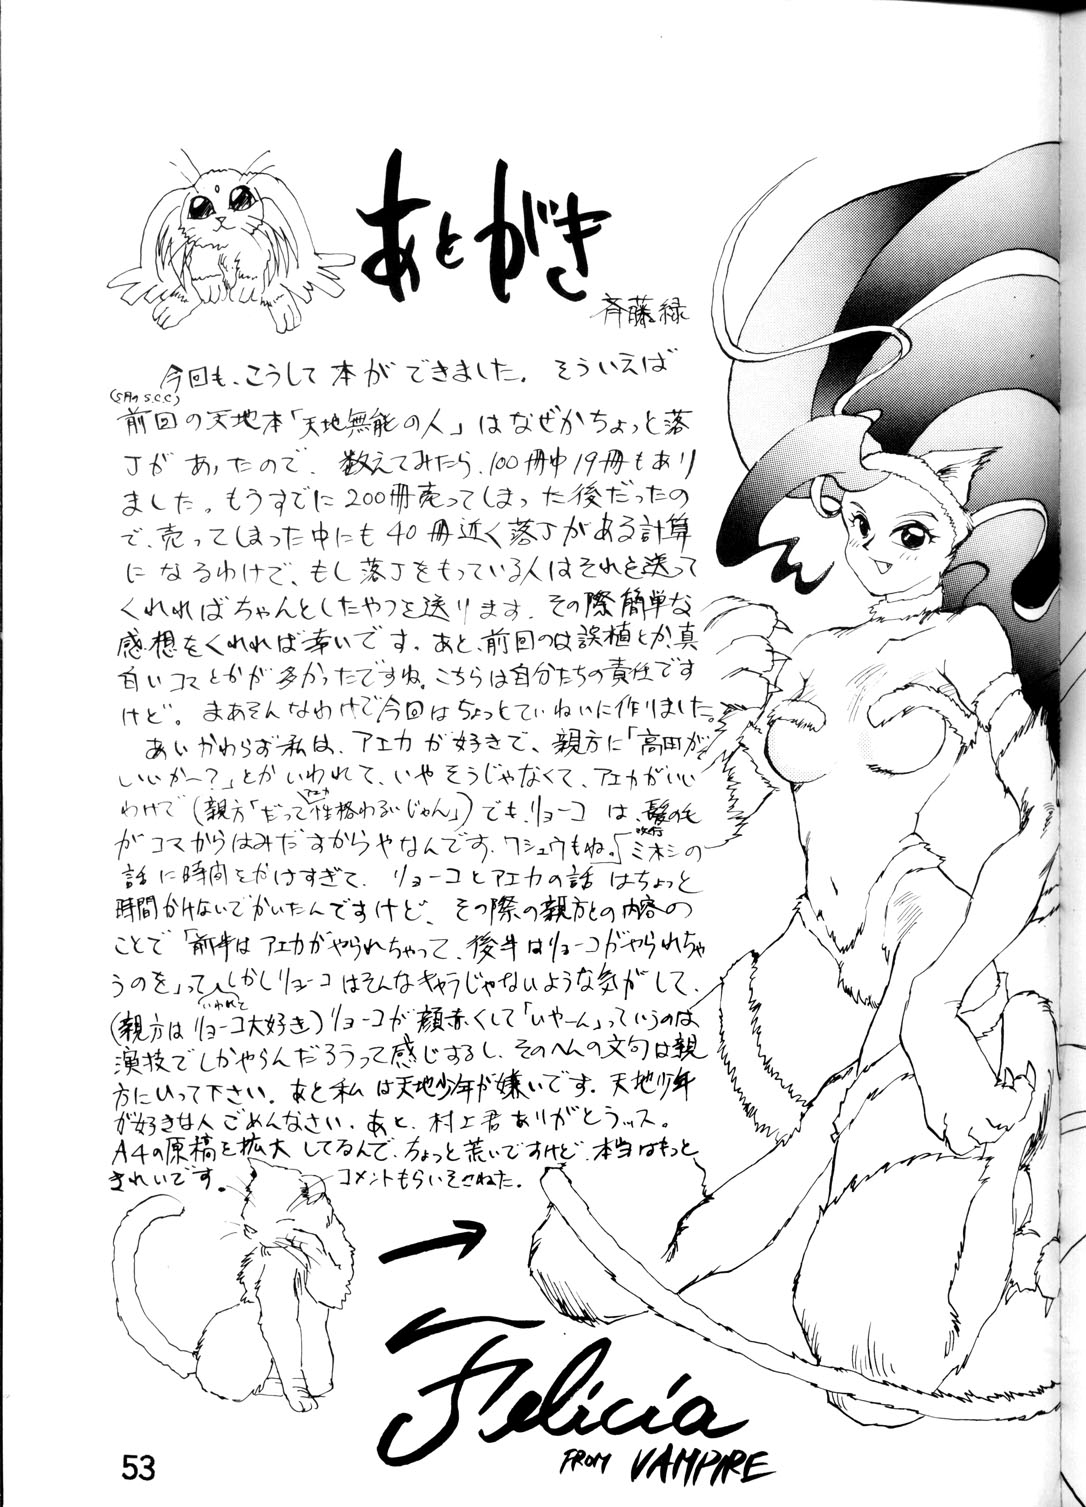 あとがき
斉藤緑
今回も、こうして本ができました。そういえば
(5月のS.C.C)
前回の天地本「天地無能の人」はなぜかちょっと落
丁があったので、数えてみたら、100冊中19冊もあり
ました。もうすでに200冊売ってしまった後だったの
で、売ってしまった中にも40冊近く落丁がある計算
になるわけで、もし落丁をもっている人はそれを送って
くれればちゃんとしたやつを送ります。その際簡単な
感想をくれれば幸いです。あと、前回のは誤植とか、真
白いコマとかが多かったですね。こちらは自分たちの責任です
けど。まあそんなわけで今回はちょっとていねいに作りました。
あいかわらず私は、アエカが好きで、親方に「高田が
いいかー?」とかいわれて、いやそうじゃなくて、アエカがいい
わけで(親方「だってアエカ性格わるいじゃん」)でも、リョーコは、髪の毛
がコマからはみだすからやなんです。ワシュウもね。ミホシの
話に時間をかけすぎて、リョーコとアエカの話はちょっと
時間かけないでかいたんですけど、その際の親方との内容の
ことで「前半はアエカがやられちゃって、後半はリョーコがやられちゃ
うのを」っていわれて、しかしリョーコはそんなキャラじゃないような気がして、
(親方はリョーコ大好き)リョーコが顔赤くして「いやーん」っていうのは
演技でしかやらんだろうって感じするし、そのへんの文句は親
方にいって下さい。あと私は天地少年が嫌いです。天地少年
が好きな人ごめんなさい。あと、村上君ありがとうッス。
A4の原稿を拡大してるんで、ちょっと荒いですけど、本当はもっと
きれいです。
コメントもらいそこねた。
Felicia
FROM VAMPIRE
53